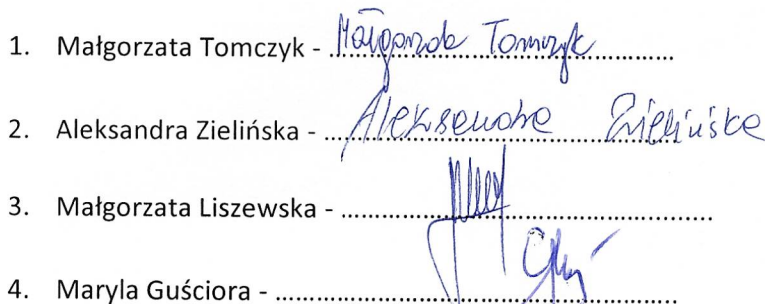 1. Małgorzata Tomczyk - Małgorzata Tomczyk
2. Aleksandra Zielińska - Aleksandra Zielińska
3. Małgorzata Liszewska - ........................................................
4. Maryla Guściora - ............................................................